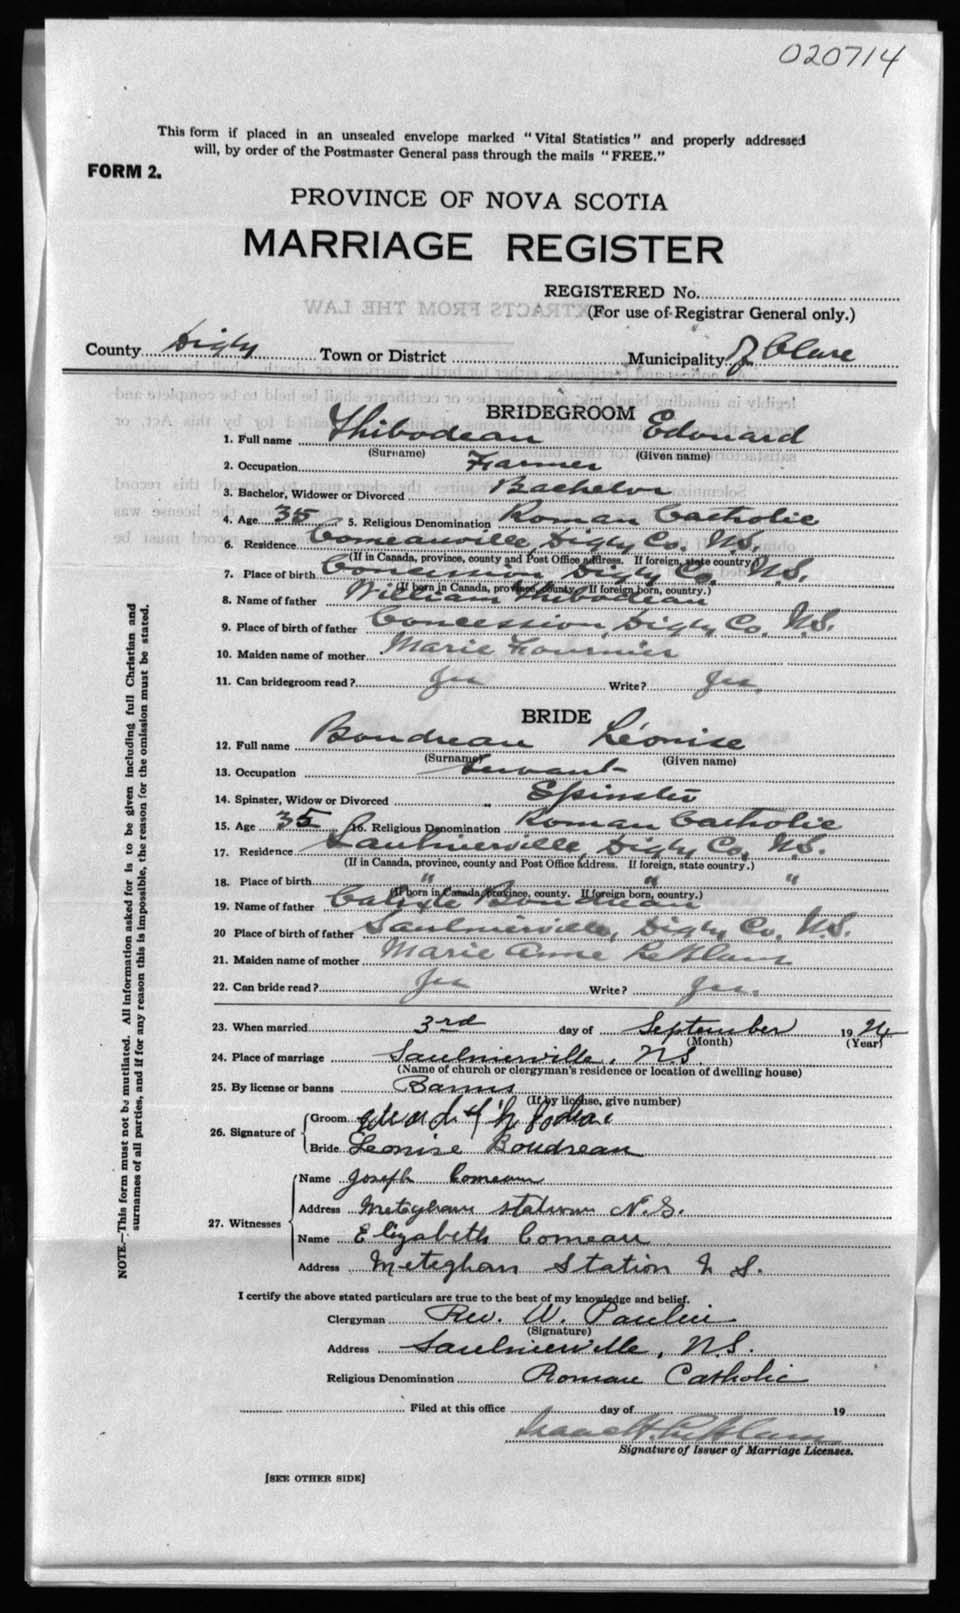 020714
This form if placed in an unsealed envelope marked "Vital Statistics" and properly addressed
will, by order of the Postmaster General pass through the mails "FREE."
FORM 2.
PROVINCE OF NOVA SCOTIA
MARRIAGE REGISTER
REGISTERED No.
(For use of Registrar General only.)
County Digby Town or District Municipality of Clare
BRIDEGROOM
1. Full name Thibodeau Edouard
(Surname) (Given name)
2. Occupation Farmer
3. Bachelor, Widower or Divorced Bachelor
4. Age 35 5. Religious Denomination Roman Catholic
6. Residence Comeauville, Digby Co. N.S.
(If in Canada, province, county and Post Office address. If foreign, state country)
7. Place of birth Concession, Digby Co. N.S.
(If born in Canada, province, county. If foreign born, country.)
8. Name of father William Thibodeau
9. Place of birth of father Concession, Digby Co. N.S.
10. Maiden name of mother Marie Fournier
11. Can bridegroom read? Yes Write? Yes.
BRIDE
12. Full name Boudreau Léonise
(Surname) (Given name)
13. Occupation Servant
14. Spinster, Widow or Divorced Spinster
15. Age 35 16. Religious Denomination Roman Catholic
17. Residence Saulnierville, Digby Co. N.S.
(If in Canada, province, county and Post Office address. If foreign, state country.)
18. Place of birth " " "
(If born in Canada, province, county. If foreign born, country.)
19. Name of father Calixte Boudreau
20 Place of birth of father Saulnierville, Digby Co. N.S.
21. Maiden name of mother Marie Anne LeBlanc
22. Can bride read? Yes Write? Yes.
23. When married 3rd day of September 1924
(Month) (Year)
24. Place of marriage Saulnierville, N.S.
(Name of church or clergyman's residence or location of dwelling house)
25. By license or banns Banns
(If by license, give number)
26. Signature of Groom
Bride Leonise Boudreau
27. Witnesses Name Joseph Comeau
Address Meteghan station N.S.
Name Elizabeth Comeau
Address Meteghan Station N S.
I certify the above stated particulars are true to the best of my knowledge and belief.
Clergyman Rev. W.
(Signature)
Address Saulnierville, N.S.
Religious Denomination Roman Catholic
Filed at this office day of 19
Isaac H. LeBlanc
Signature of Issuer of Marriage Licenses.
[SEE OTHER SIDE]
NOTE.—This form must not be mutilated. All information asked for is to be given including full Christian and
surnames of all parties, and if for any reason this is impossible, the reason for the omission must be stated.